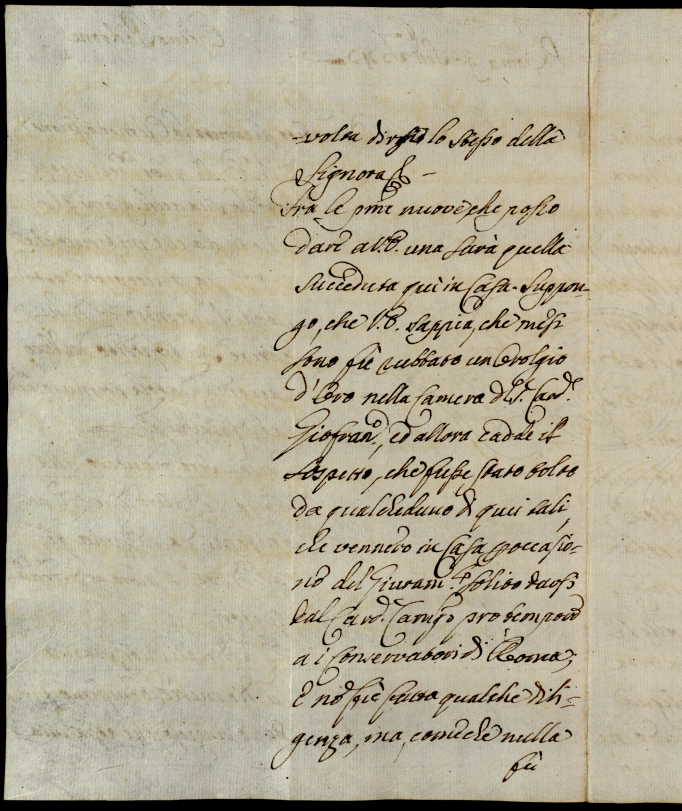 volta di questo lo stesso della
Signora &
Fra le pme nuove, che posso
dare a V.E. una sarà quella
succeduta qui in Casa. Suppon-
go, che V.E. sappia, che mesi
sono fù rubbato un Orologio
d'Oro nella Camera del S.r Card.
Giofran.o, ed allora cadde il
sospetto, che fusse stato tolto
da qualcheduno di quei tali,
che vennero in Casa p occasio-
ne del Giuram.to solito darsi
dal Card. Camgo pro tempore
a i Conservatori di Roma;
e nè fù fatta qualche dili-
genza, ma, come che nulla
fù